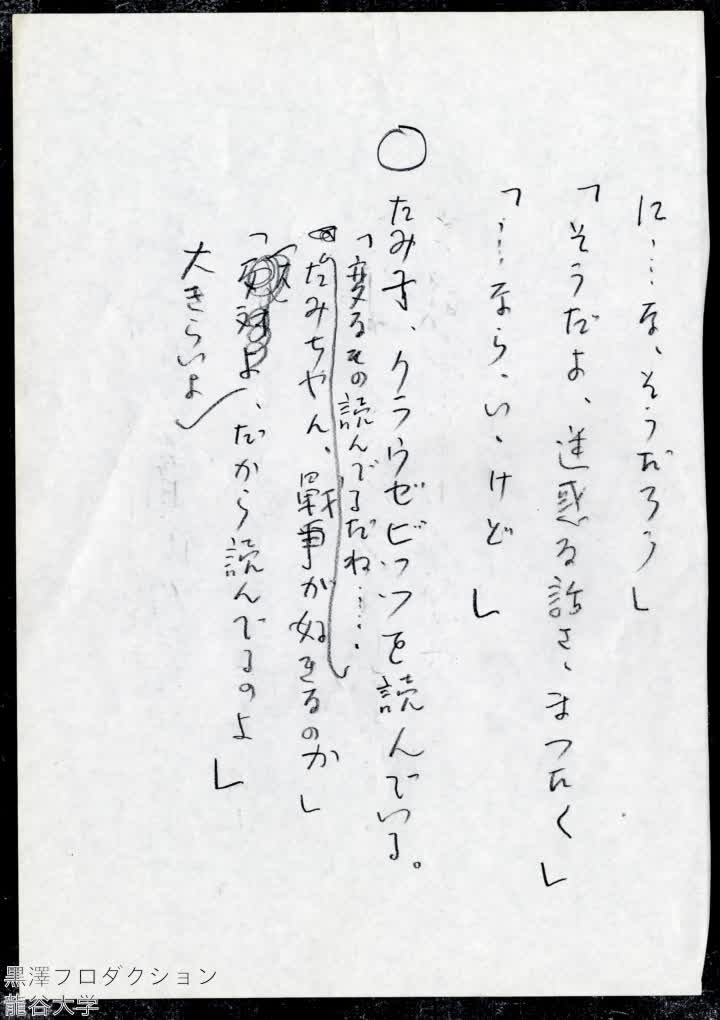 に……な、そうだろう」
「そうだよ、迷惑な話さ、まったく」
「……なら、いゝけど」
○
たみ子、クラウゼビッツを読んでいる。
「変なもの読んでるだね……
たみちやん、軍事が好きなのか」
よ、だから読んでるのよ」
大きらいよ
黒澤プロダクション
龍谷大学